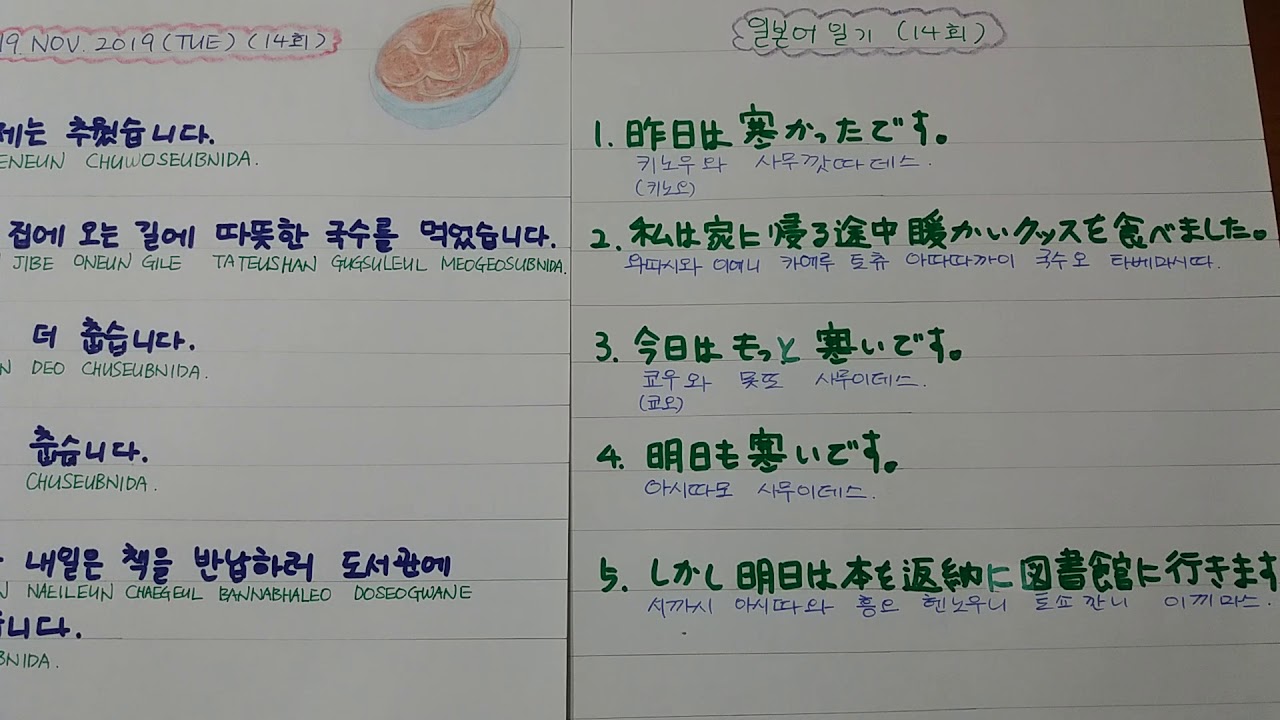 19 NOV. 2019 (TUE) (14회)
제는 추웠습니다.
ENEUN CHUWOSEUBNIDA.
집에 오는 길에 따뜻한 국수를 먹었습니다.
JIBE ONEUN GILE TATEUSHAN GUGSULEUL MEOGEOSUBNIDA.
더 춥습니다.
N DEO CHUSEUBNIDA.
춥습니다.
CHUSEUBNIDA.
내일은 책을 반납하러 도서관에
N NAEILEUN CHAEGEUL BANNABHALEO DOSEOGWANE
니다.
BNIDA.
일본어 일기 (14회)
1. 昨日は 寒かったです。
키노우와 사무깟따데스.
(키노오)
2. 私は家に帰る途中 暖かいクッスを食べました。
와따시와 이에니 카에루 토츄 아따따까이 국수오 타베마시따.
3. 今日は もっと 寒いです。
쿄우와 못또 사무이데스.
(쿄오)
4. 明日も寒いです。
아시따모 사무이데스.
5. しかし 明日は本を返納に図書館に行きます
시까시 아시따와 홍오 헨노우니 토쇼깐니 이끼마스.